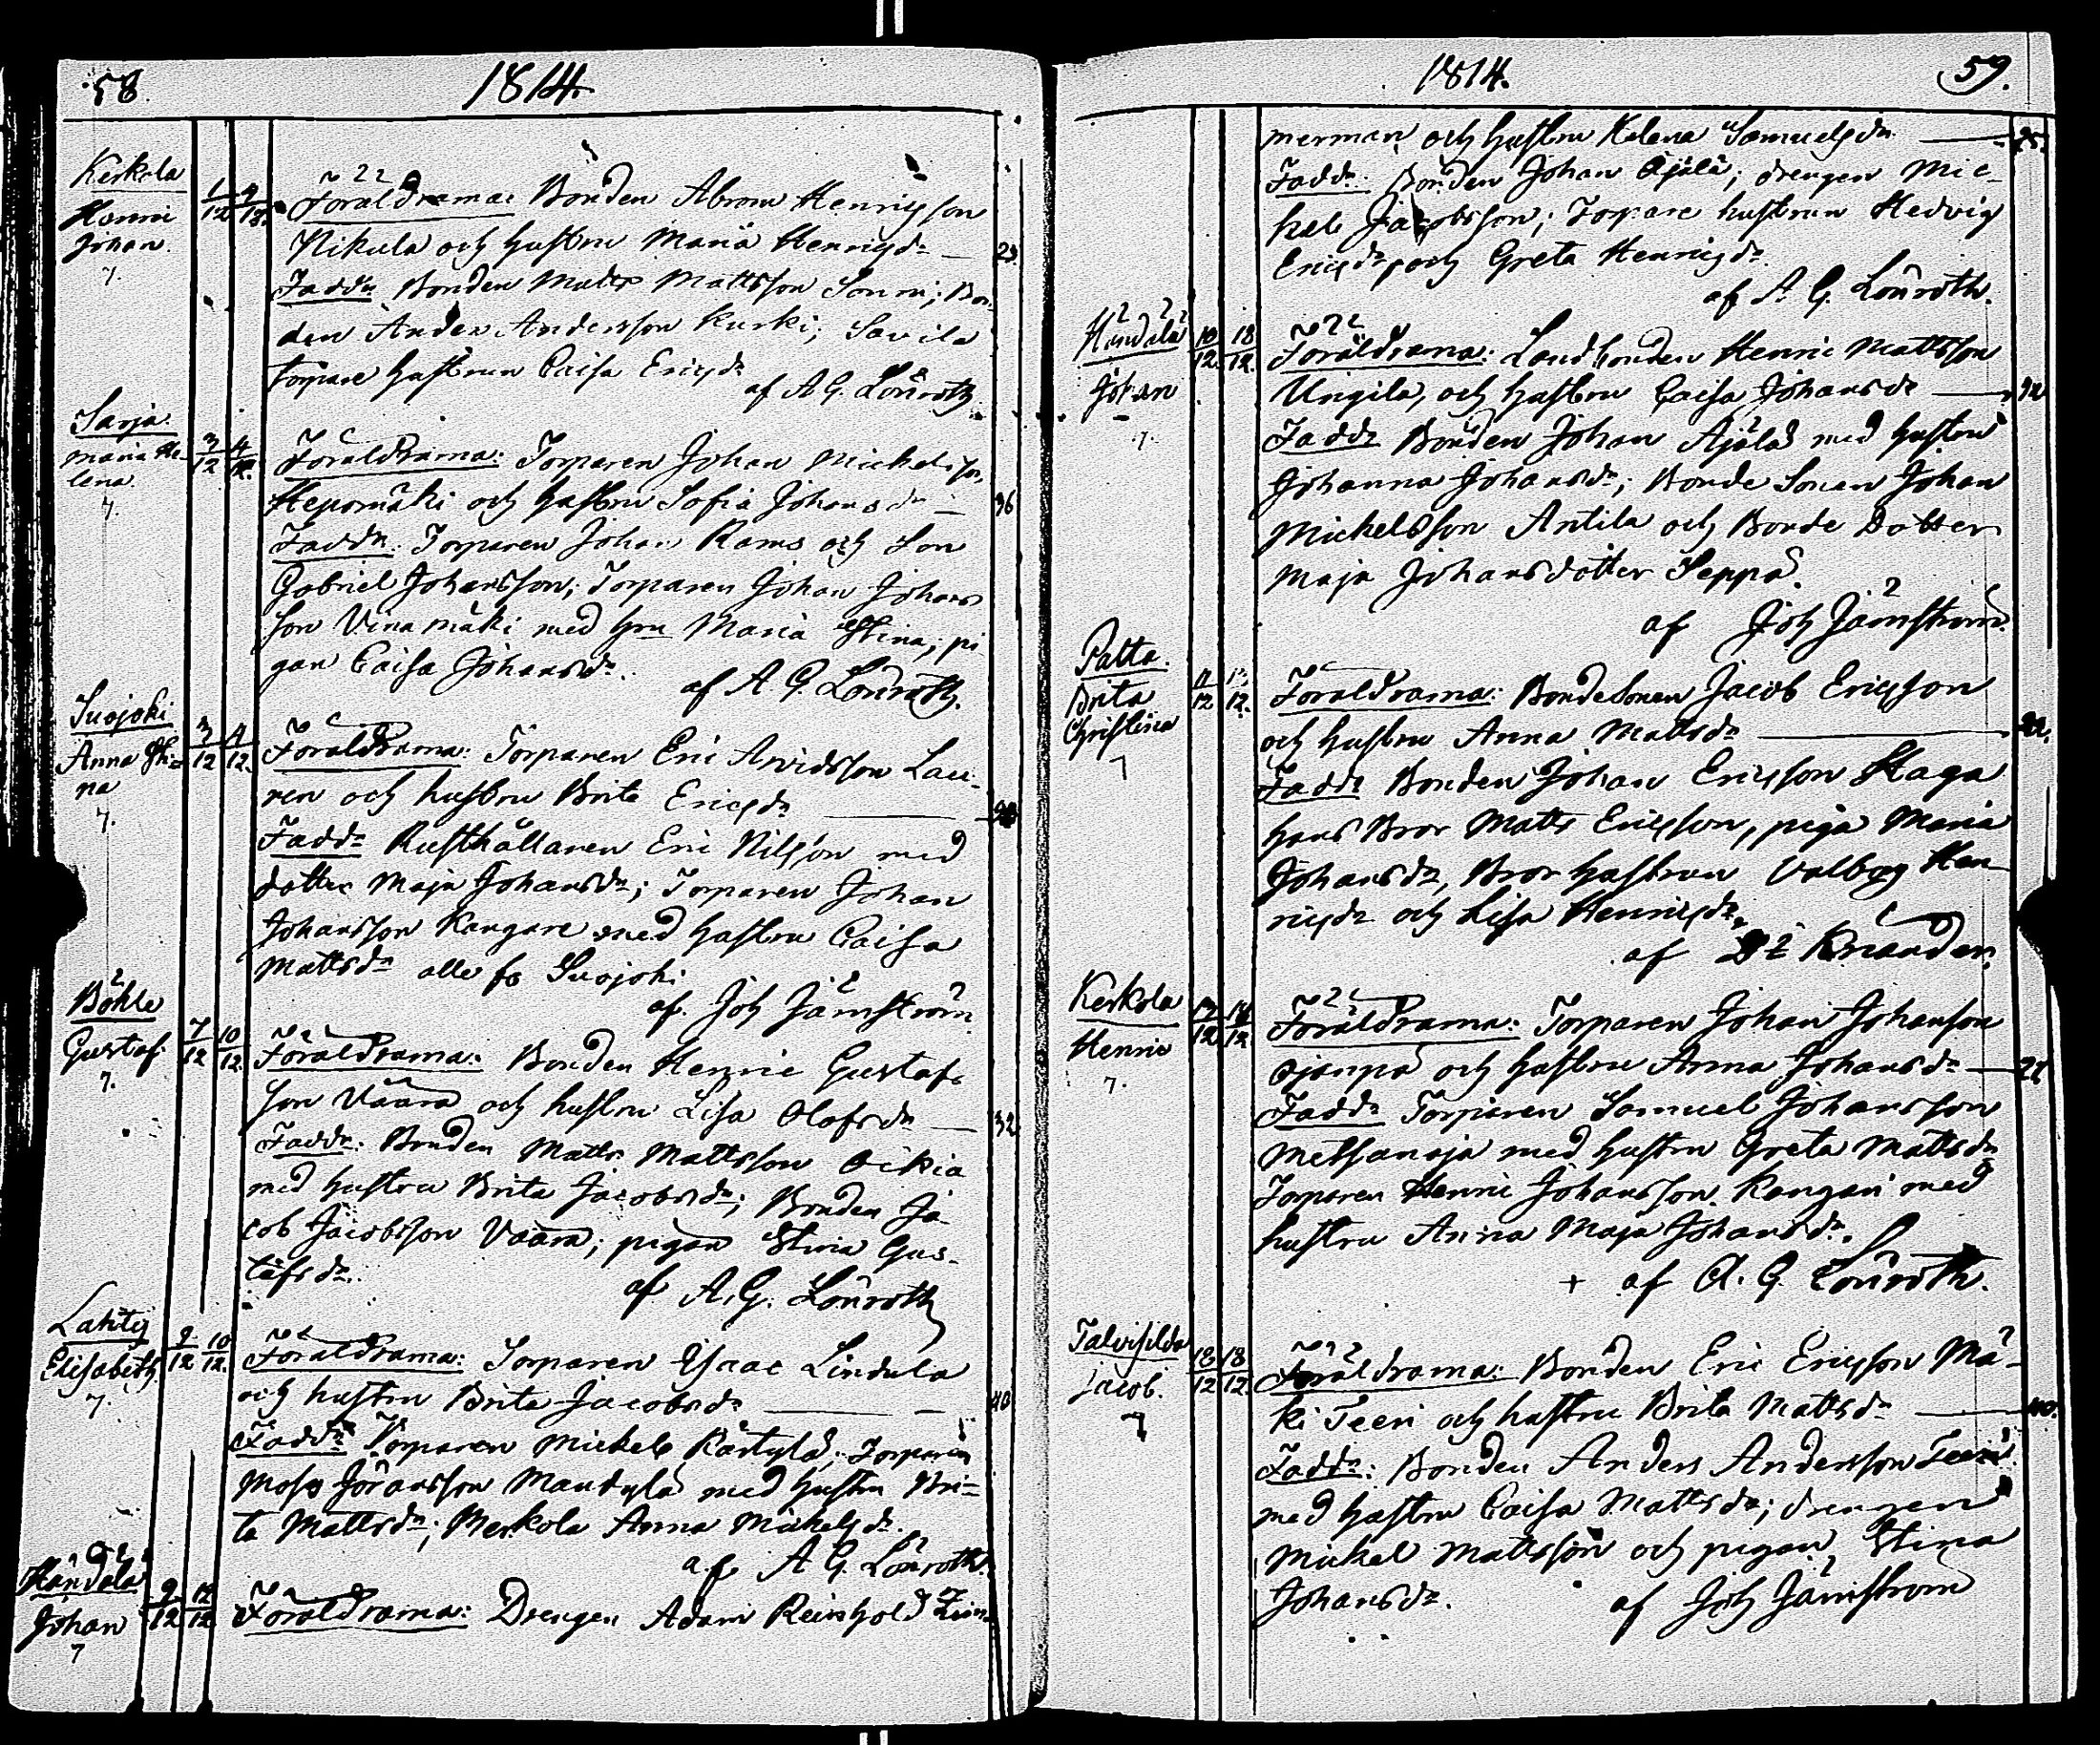 58. 1814.
Kerkola
Henric
Johan.
7.
1/12 4/12.
Föräldrarna: Bonden Abram Henricsson
Nikula och hustru Maria Henricsdr — 29.
Faddr Bonden Matts Mattsson Sonni; Bon-
den Anders Andersson Kurki; Savila
torpare hustrun Caisa Ericsdr
af A G. Lönroth.
Sarja.
Maria He-
lena.
7.
3/12 4/12.
Föräldrarna: Torparen Johan Mickelsson
Hepomäki och hustru Sofia Johansdr — 36
Faddr. Torparen Johan Rams och Son
Gabriel Johansson; Torparen Johan Johans
son Vinamäki med hru Maria Stina; pi
gan Caisa Johansdr.
af A G. Lönroth.
Suojoki
Anna Sti-
na
7.
3/12 4/12.
Föräldrarna: Torparen Eric Arvidsson Lau-
ren och hustru Brita Ericsdr —
Faddr Rusthållaren Eric Nilsson med
dotter Maja Johansdr; Torparen Johan
Johansson Kangare med hustru Caisa
Mattsdr alle fr Suojoki
af Joh Jämström
Böhle
Gustaf.
7.
7/12 10/12.
Föräldrarna: Bonden Henric Gustafs
son Väära och hustru Lisa Olofsdr — 32
Faddr: Bonden Matts Mattsson Oikia
med hustru Brita Jacobsdr; Bonden Ja-
cob Jacobsson Väära; pigan Stina Gus-
tafsdr.
af A. G. Lönroth
Lahty
Elisabeth
7.
9/12 10/12.
Föräldrarna: Torparen Isaac Lindula
och hustru Brita Jacobsdr — 40
Faddr Torparen Mickel Kärtylä; Torparen
Moses Jöransson Mantylä med hustru Bri-
ta Mattsdr; Merkola Anna Mickelsdr.
af A G. Lönroth.
Händälä
Johan
7
9/12 12/12
Föräldrarna: Drengen Adam Reinhold Zim-
1814. 59.
merman och hustru Helena Samuelsdr — 25.
Faddr: Bonden Johan Äjälä; drengen Mic-
kel Jacobsson; Torpare hustrun Hedvig
Ericsdr, och Greta Henricsdr.
af A G. Lönroth.
Händälä
Johan
7.
10/12. 18/12.
Föräldrarna: Landbonden Henric Mattsson
Ungila, och hustru Caisa Johansdr —
Faddr Bonden Johan Äjälä med hustru
Johanna Johansdr; Bonde Sonen Johan
Mickelsson Antila och Bonde Dotter
Maja Johansdotter Seppä.
af Joh Jämström.
Palta.
Brita
Christina
7
11/12 12.
Föräldrarna: Bondesonen Jacob Ericsson
och hustru Anna Mattsdr —
Faddr Bonden Johan Ericsson Skaga
hans Bror Matts Ericsson, piga Maria
Johansdr, Bror hustrun Valborg Hen-
ricsdr och Lisa Henricsdr.
af Kriander.
Kerkola
Henric
7.
12 12
Föräldrarna: Torparen Johan Johansson
Ojanpä och hustru Anna Johansdr —
Faddr Torparen Samuel Johansson
Metsänoja med hustru Greta Mattsdr
Torparen Henric Johansson Kangari med
hustru Anna Maja Johansdr.
+ af A. G. Lönroth.
Talvisilda
Jacob.
7
18/12 18/12.
Föräldrarna: Bonden Eric Ericsson Mä-
ki Teeri och hustru Brita Mattsdr — 40.
Faddr: Bonden Anders Andersson Teeri
med hustru Caisa Mattsdr; drengen
Mickel Mattsson och pigan Stina
Johansdr.
af Joh Jämström